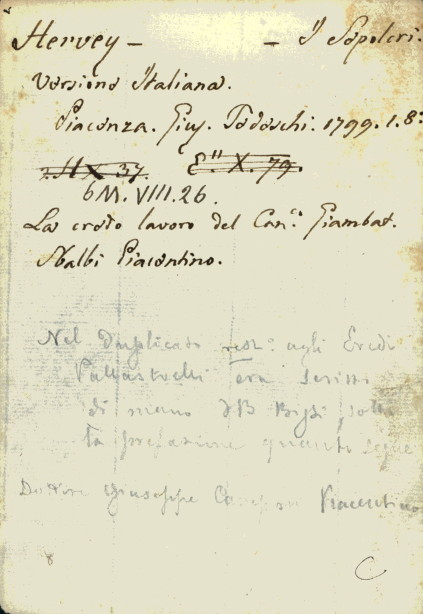 Hervey - - I Sepolcri.
Versione Italiana.
Piacenza. Gius. Tedeschi. 1799. 1. 8º
H X 37. E." X. 79.
6M. VIII. 26.
La credo lavoro del Can.co Giambat.
Nalbi Piacentino.
Nel Duplicato rest.º agli Eredi
Pallastrelli era scritto
di mano sotto
la prefazione quanto segue
Dottore Giuseppe Piacentino
8 C